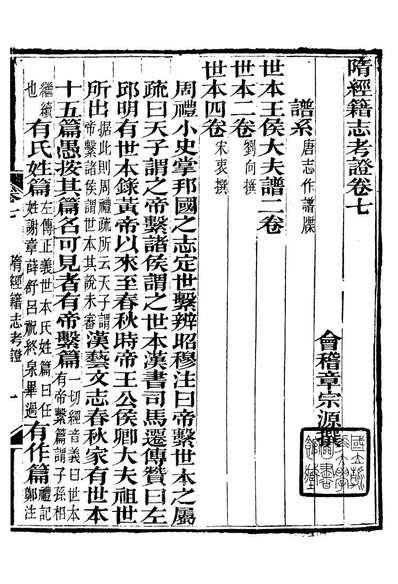 隋經籍志考證卷七
會稽章宗源撰
譜系唐志作譜牒
世本王侯大夫譜二卷
世本二卷劉向撰
世本四卷宋衷撰
周禮小史掌邦國之志定世繫辨昭穆注曰帝繫世本之屬
疏曰天子謂之帝繫諸侯謂之世本漢書司馬遷傳贊曰左
邱明有世本錄黃帝以來至春秋時帝王公侯卿大夫祖世
所出據此則周禮疏所云天子謂帝繫諸侯謂世本其說未審漢藝文志春秋家有世本
十五篇愚按其篇名可見者有帝繫篇一切經音義曰世本有帝繫篇謂子孫相
繼續也有氏姓篇左傳正義世本氏姓篇曰任姓謝章薛舒呂祝終泉畢過有作篇禮記鄭注
卷七 隋經籍志考證 一